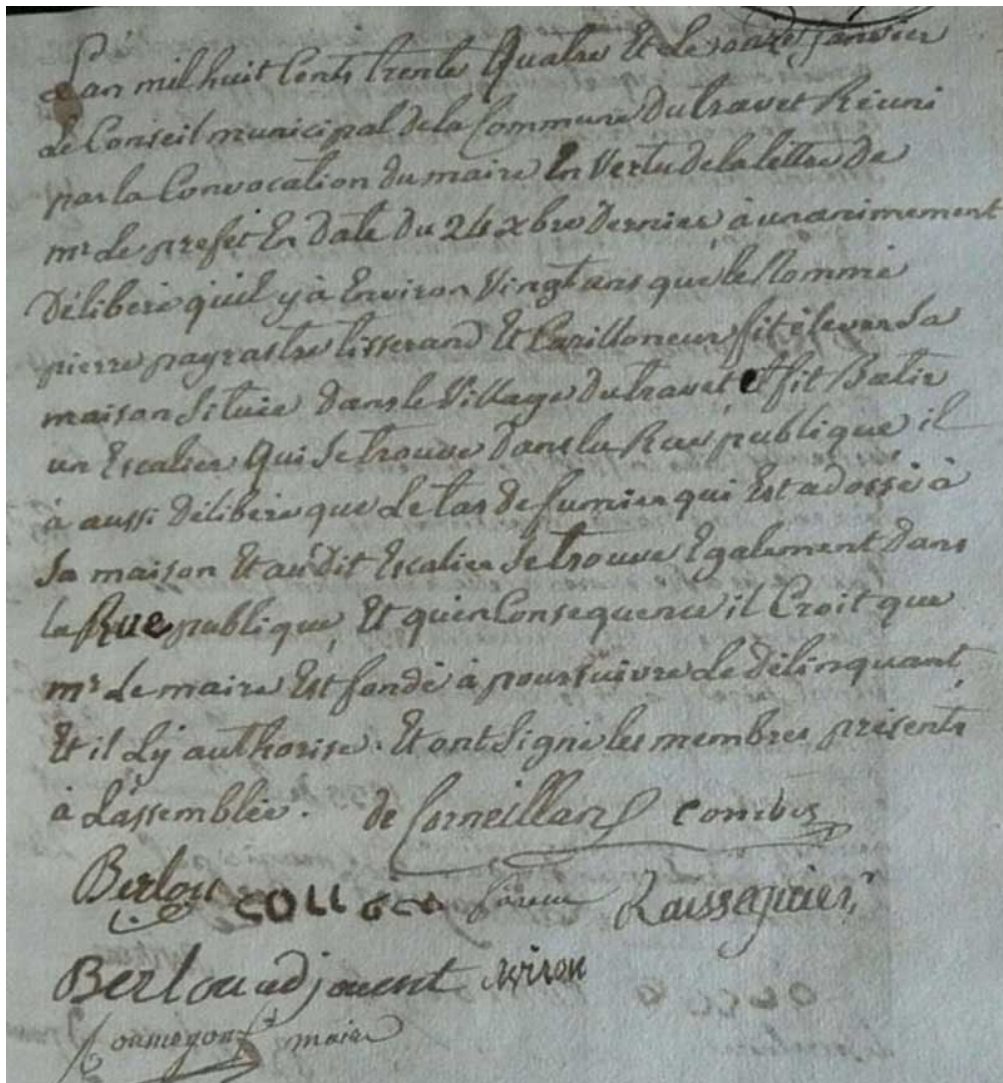 L'an mil huit Cents trente Quatre Et le onze janvier
Le Conseil municipal dela Commune Du travet Réuni
par la Convocation du maire En Vertu de la lettre de
mr Le prefet En date du 24 xbre dernier à unanimement
Délibéré quil y à Environ Vingt ans que le Nommé
pierre payrastre tisserand Et Carilloneur fit élever Sa
maison Située dans le Village du travet, et fit Batir
un Escalier Qui Se trouve dans la Rue publique il
à aussi délibéré que Le tas de fumier qui Est adossé à
Sa maison Et audit Escalier Se trouve Egalement dans
la Rue publique, Et qu'en Consequence il Croit que
mr Le maire Est fondé à poursuivre Le délinquant,
Et il L'y authorise. Et ont Signé les membres présents
à L'assemblée. de Corneillan Combes
Berlou Raissaguier,
Berlou adjouent
maire